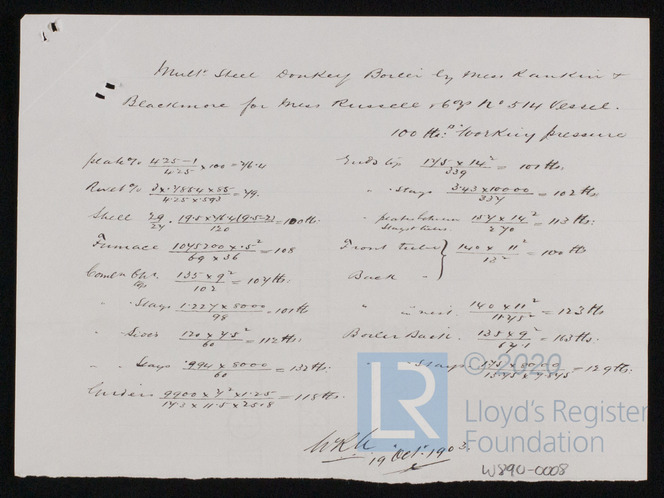 Multr Steel Donkey Boiler by Mess Rankin &
Blackmore for Mess Russell & Co's No 514 Vessel.
100 lbs □" Working pressure
plate % 4.25-1/4.25 × 100 = 76.4
Rivet % 3 × .7854 × 85/4.25 × .593 = 79.
Shell
Furnace 1075200 × .5²/69 × 36 = 108
Combn Chr tops 135 × 9²/102 = 107 lbs.
" Stays 1.227 × 8000/98 = 101 lbs
" Sides 120 × 7.5²/60 = 112 lbs:
" " Stays .994 × 8000/60 = 132 lbs:
Girders 9900 × 7² × 1.25/14.3 × 11.5 × 25.8 = 118 lbs.
Ends top 175 × 14²/339 = 101 lbs.
" " Stays 3.43 × 10000/337 = 102 lbs:
" plates between Stays & tubes 157 × 14²/270 = 113 lbs:
Front tubes 140 × 11²/13² = 100 lbs
Back "
" " in nest. 140 × 11²/11.75² = 123 lbs
Boiler Back. 135 × 9²/67.1 = 163 lbs:
" " Stays = 129 lbs:
19 Octr 1903.
W890-0008
LR
© 2020
Lloyd's Register
Foundation